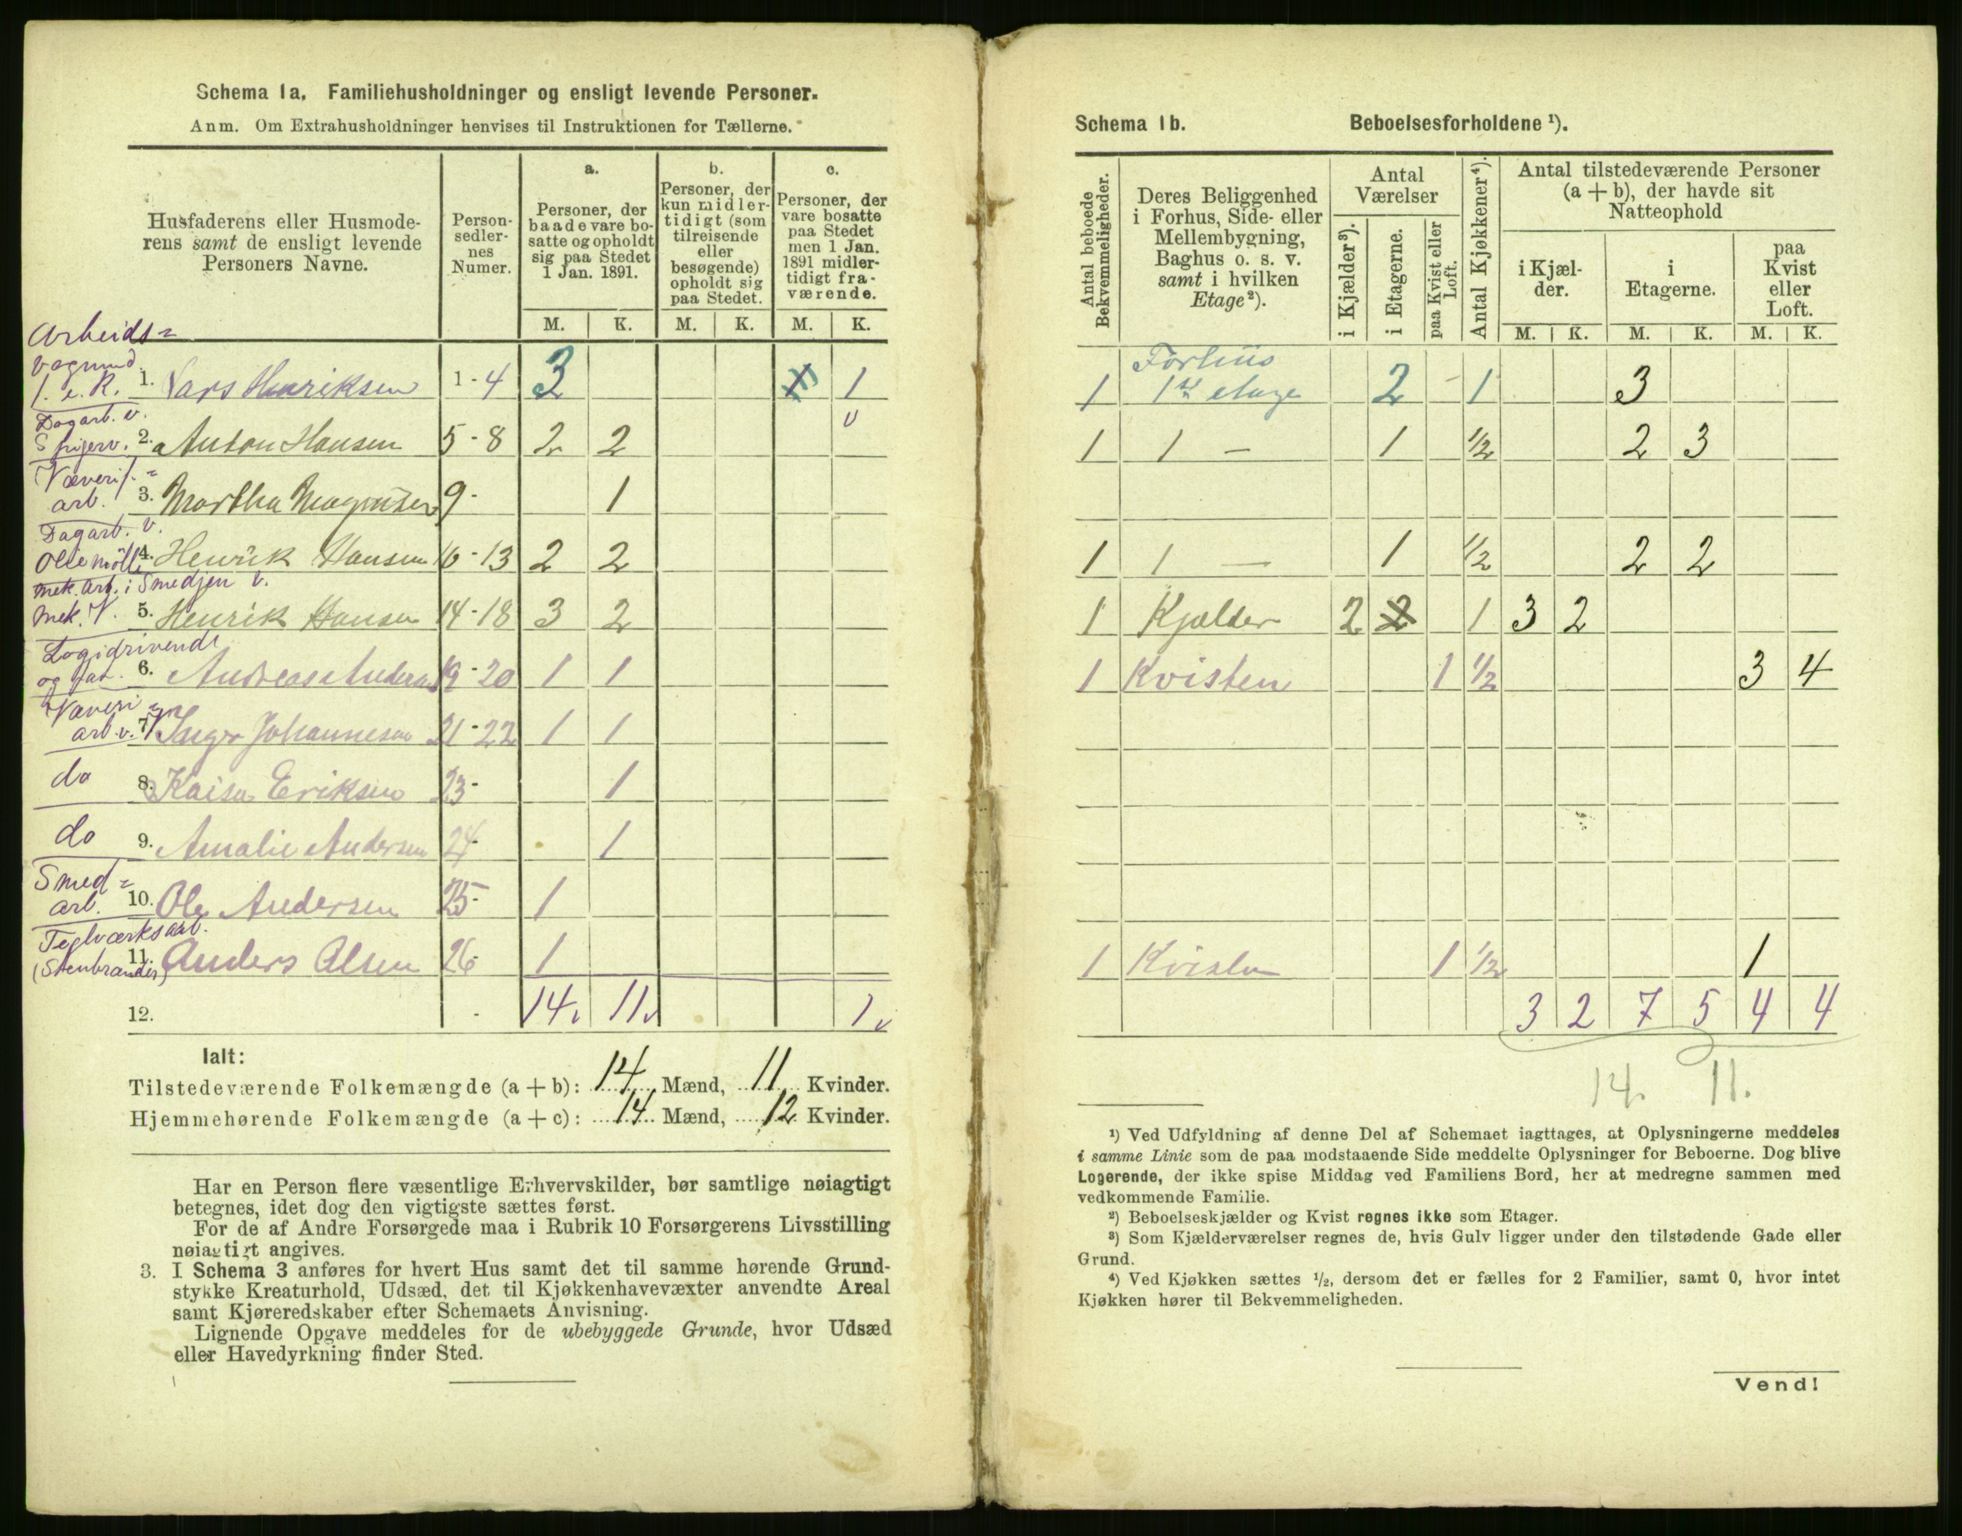 Schema 1a. Familiehusholdninger og ensligt levende Personer.
Anm. Om Extrahusholdninger henvises til Instruktionen for Tællerne.
Husfaderens eller Husmode-
rens samt de ensligt levende
Personers Navne.
Person-
sedler-
nes
Numer.
a.
Personer, der
baade vare bo-
satte og opholdt
sig paa Stedet
1 Jan. 1891.
b.
Personer, der
kun midler-
tidigt (som
tilreisende
eller
besøgende)
opholdt sig
paa Stedet.
c.
Personer, der
vare bosatte
paa Stedet
men 1 Jan.
1891 midler-
tidigt fra-
værende.
M. K. M. K. M. K.
Arbeids=
f. e. K. 1. Lars Henriksen 1-4 3 1
Dagarb. v.
Spigerv. 2. Anton Hansen 5-8 2 2
Væverif.=
arb. 3. Martha 9- 1
Dagarb. v.
Ollemölle 4. Henrik Hansen 10-13 2 2
Mek. Arb. i Smedjen v.
Mek. V. 5. Henrik Hansen 14-18 3 2
Logidrivende
6. Andreas Anders 19-20 1 1
Væveri=
arb. v. 7. Inger Johannesen 21-22 1 1
do 8. Kaisa Eriksen 23- 1
do 9. Amalie Andersen 24- 1
Smed=
arb. 10. Ole Andersen 25- 1
Teglværksarb.
(Stenbrænder) 11. Anders Olsen 26- 1
12. 14 11 1
Ialt:
Tilstedeværende Folkemængde (a + b): 14 Mænd, 11 Kvinder.
Hjemmehørende Folkemængde (a + c): 14 Mænd, 12 Kvinder.
Har en Person flere væsentlige Erhvervskilder, bør samtlige nøiagtigt
betegnes, idet dog den vigtigste sættes først.
For de af Andre Forsørgede maa i Rubrik 10 Forsørgerens Livsstilling
nøiagtigt angives.
3. I Schema 3 anføres for hvert Hus samt det til samme hørende Grund-
stykke Kreaturhold, Udsæd, det til Kjøkkenhavevæxter anvendte Areal
samt Kjøreredskaber efter Schemaets Anvisning.
Lignende Opgave meddeles for de ubebyggede Grunde, hvor Udsæd
eller Havedyrkning finder Sted.
Schema 1b. Beboelsesforholdene ¹).
Antal beboede
Bekvemmeligheder.
Deres Beliggenhed
i Forhus, Side- eller
Mellembygning,
Baghus o. s. v.
samt i hvilken
Etage²).
Antal
Værelser
i Kjælder³).
i Etagerne.
paa Kvist eller
Loft.
Antal Kjøkkener⁴).
Antal tilstedeværende Personer
(a + b), der havde sit
Natteophold
i Kjæl-
der.
i
Etagerne.
paa
Kvist
eller
Loft.
M. K. M. K. M. K.
Forhus
1 1ste etage 2 1 3
1 1 — 1 1/2 2 3
1 1 — 1 1/2 2 2
1 Kjælder 2 2 1 3 2
1 Kvisten 1 1/2 3 4
1 Kvisten 1 1/2 1
3 2 7 5 4 4
14. 11.
¹) Ved Udfyldning af denne Del af Schemaet iagttages, at Oplysningerne meddeles
i samme Linie som de paa modstaaende Side meddelte Oplysninger for Beboerne. Dog blive
Logerende, der ikke spise Middag ved Familiens Bord, her at medregne sammen med
vedkommende Familie.
²) Beboelseskjælder og Kvist regnes ikke som Etager.
³) Som Kjælderværelser regnes de, hvis Gulv ligger under den tilstødende Gade eller
Grund.
⁴) Ved Kjøkken sættes ½, dersom det er fælles for 2 Familier, samt 0, hvor intet
Kjøkken hører til Bekvemmeligheden.
Vend!